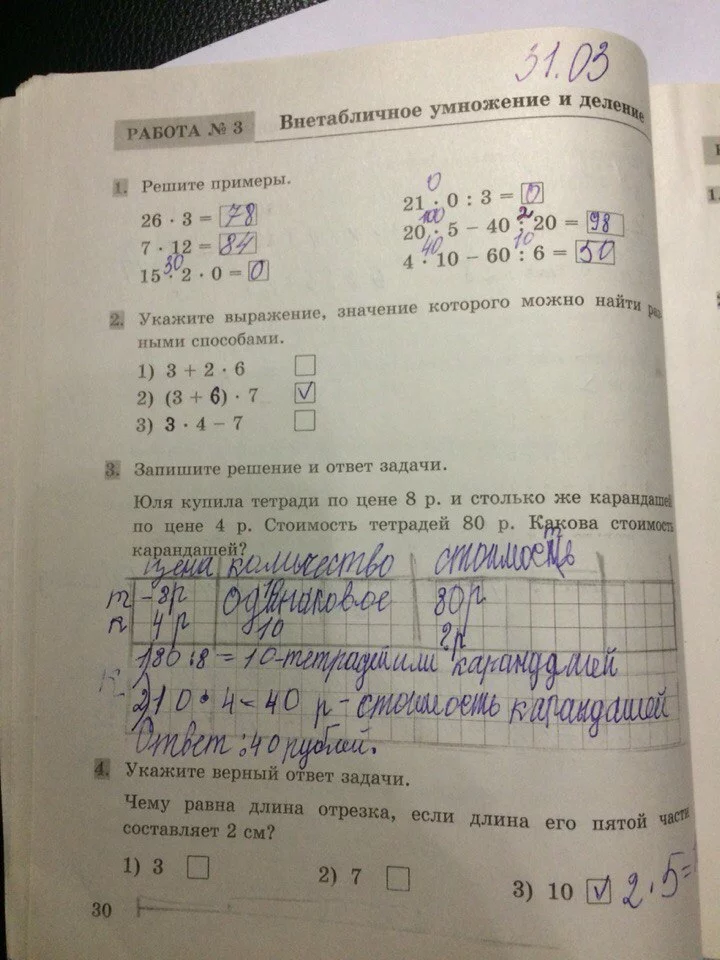 31.03
РАБОТА № 3
Внетабличное умножение и деление
1. Решите примеры.
26 · 3 = 78
7 · 12 = 84
30
15 · 2 · 0 = 0
0
21 · 0 : 3 = 0
100 2
20 · 5 − 40 : 20 = 98
40 10
4 · 10 − 60 : 6 = 30
2. Укажите выражение, значение которого можно найти раз-
ными способами.
1) 3 + 2 · 6
2) (3 + 6) · 7 ✓
3) 3 · 4 − 7
3. Запишите решение и ответ задачи.
Юля купила тетради по цене 8 р. и столько же карандашей
по цене 4 р. Стоимость тетрадей 80 р. Какова стоимость
карандашей?
цена количество стоимость
т – 8р одинаковое 80р
к 4 р 10 ? р
1) 80 : 8 = 10 - тетрадей или карандашей
2) 10 · 4 = 40 р - стоимость карандашей
Ответ: 40 рублей.
4. Укажите верный ответ задачи.
Чему равна длина отрезка, если длина его пятой части
составляет 2 см?
1) 3
2) 7
3) 10 ✓ 2 · 5 =
30